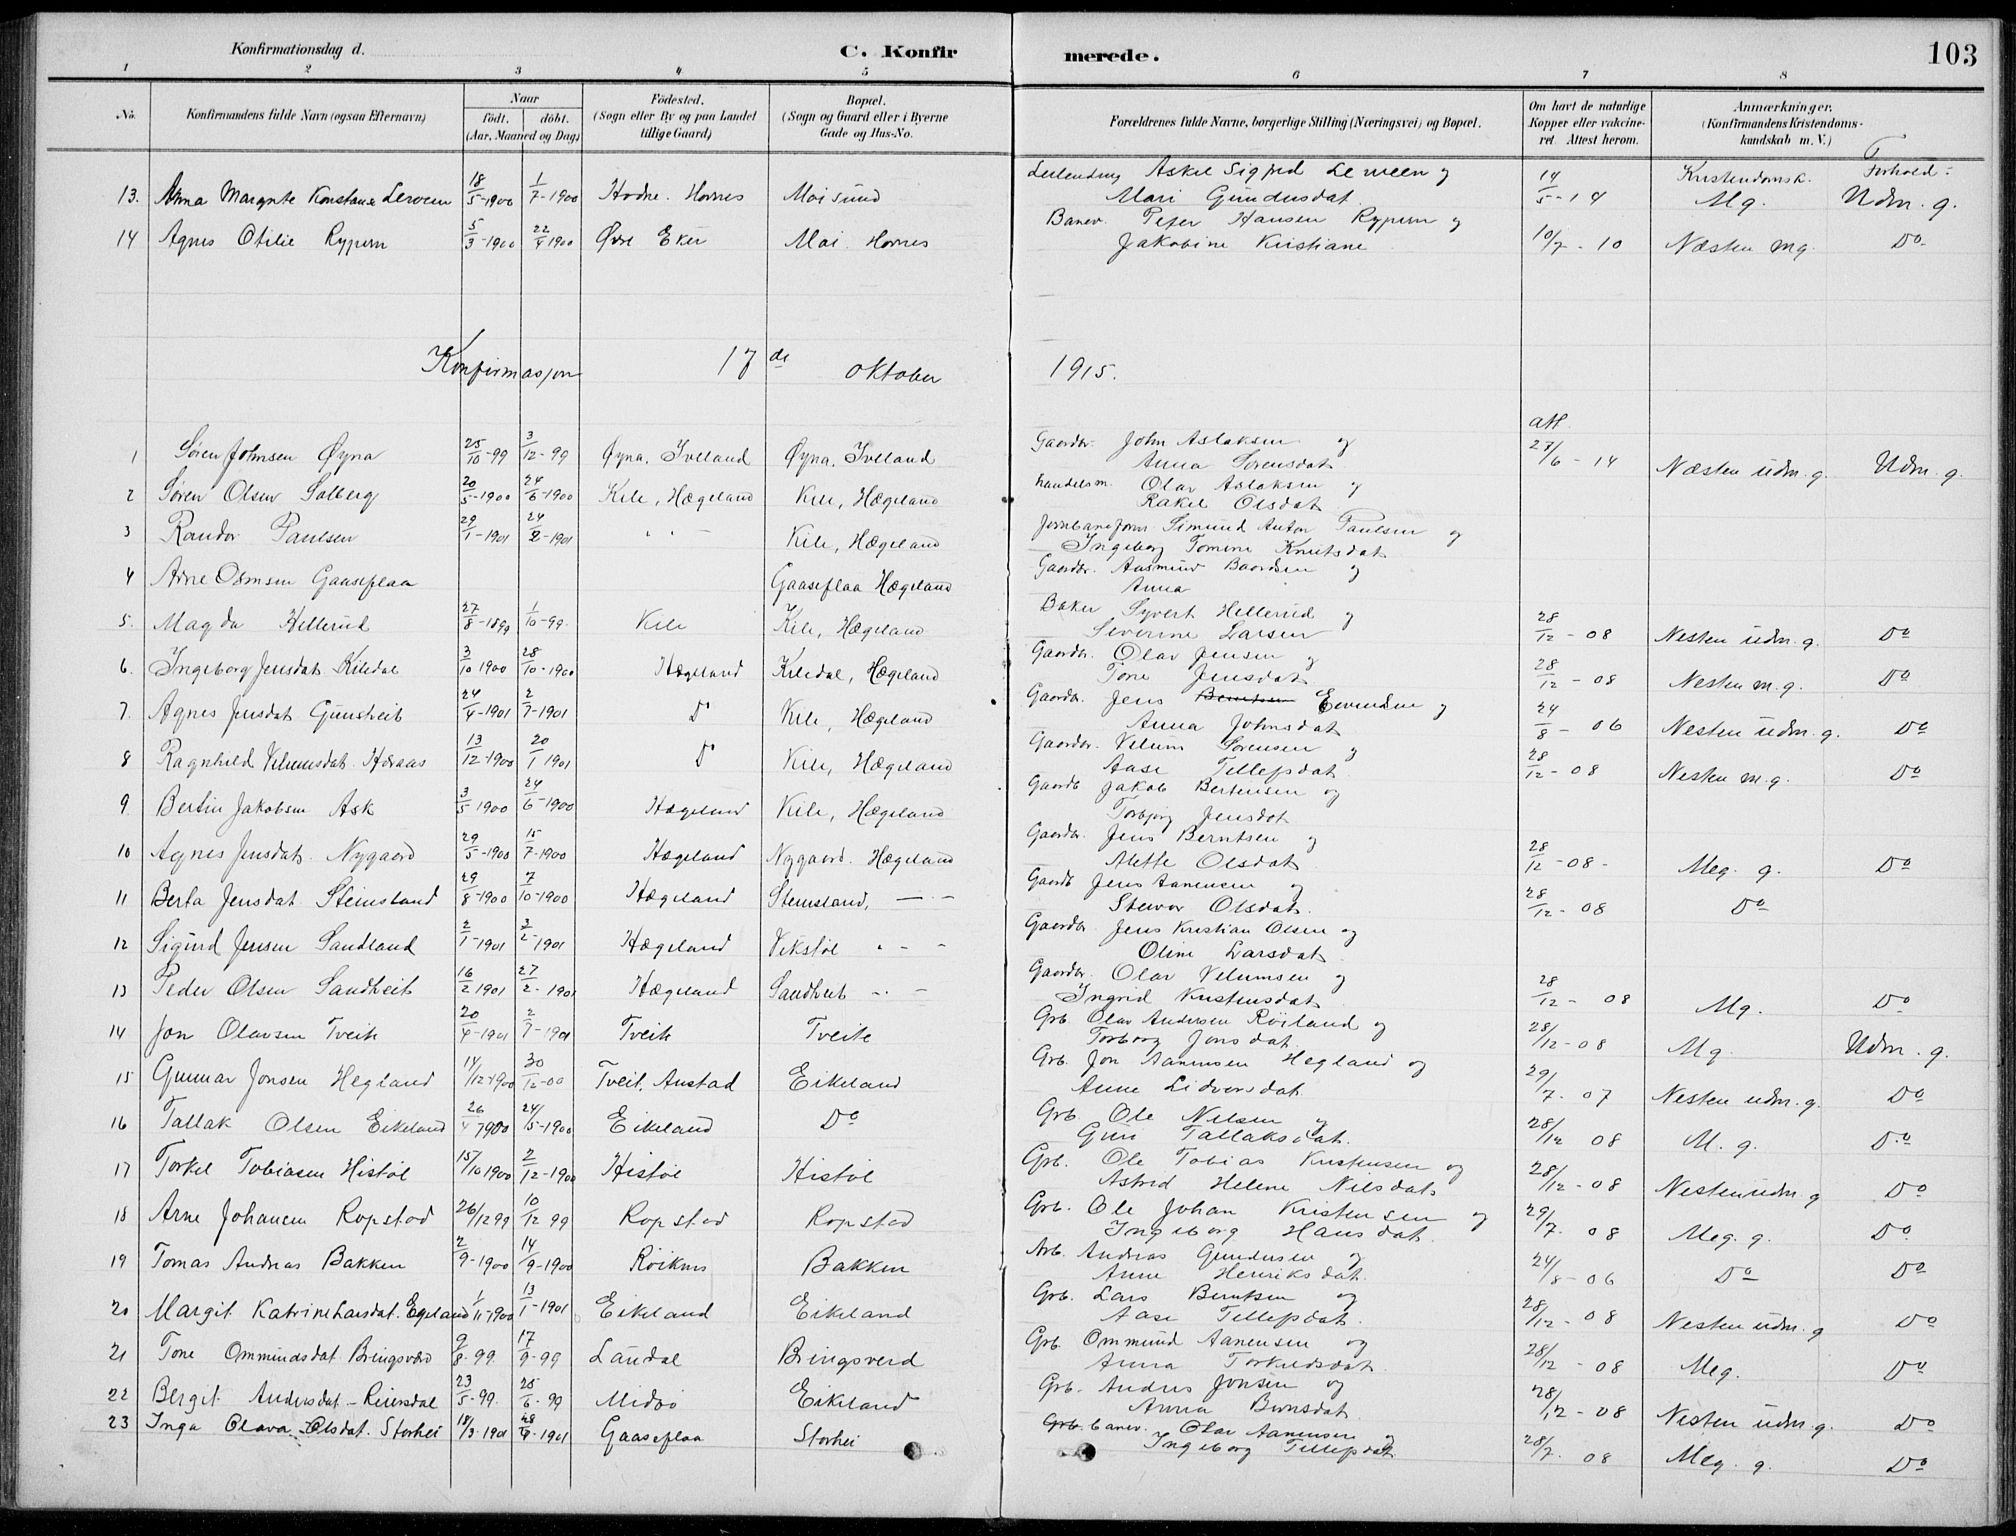 Konfirmationsdag d. C. Konfirmerede. 103
1 2 3 4 5 6 7 8
No. Konfirmandens fulde Navn (ogsaa Efternavn) Naar født. døbt. (Aar, Maaned og Dag) Fødested. (Sogn eller By og paa Landet tillige Gaard) Bopæl. (Sogn og Gaard eller i Byerne Gade og Hus-No. Forældrenes fulde Navne, borgerlige Stilling (Næringsvei) og Bopæl. Om havt de naturlige Kopper eller vakcineret. Attest herom. Anmærkninger. (Konfirmandens Kristendomskundskab m. V.)
Kristendomsk. Forhold
13. Anna Margrete Konstanse 18/5-1900 1/7-1900 Hodne. Hornes Moisund Askel Sigfred og Mari Gundersdat. 14/5-14 Mg. Udm. g.
14 Agnes Otilie Rypern 5/3-1900 22/4 1900 Øvre Eker Moi. Hornes Banev. Peter Hansen Rypern og Jakobine Kristiane 10/7-10 Næsten mg. Do
Konfirmasjon 17de oktober 1915.
att
1 Søren Johnsen Øyna 25/10-99 3/12-99 Øyna. Iveland Øyna. Iveland Gaardbr. John Aslaksen og Anna Sorensdat. 27/6-14 Næsten udm. g. Udm. g.
2 Søren Olsen Solberg 20/5-1900 24/6-1900 Kile, Hægeland Kile, Hægeland handelsm. Olav Aslaksen og Rakel Olsdat.
3 Randor Paulsen 29/1-1901 24/2-1901 " - Kile, Hægeland Jernbaneform. Simund Anton Paulsen og Ingeborg Tomine Knutsdat.
4 Arne Osmsen Gaaseflaa Gaaseflaa Hægeland Gaardbr. Aasmund Baardsen og Anna
5. Magda Hellerud 27/8-1899 1/10-99. Kile Kile, Hægeland Baker Syvert Hellerud og Severine Larsen 28/12-08 Nesten udm. g. Do
6. Ingeborg Jensdat. Kiledal 3/10 1900 28/10-1900 Hægeland Kiledal, Hægeland Gaardbr. Olav Jensen og Tone Jensdat. 28/12-08 Nesten m. g. Do
7. Agnes Jensdat. Gunsheit 24/4-1901 2/7-1901 Do Kile, Hægeland Gaardbr. Jens Eivindsen og Anna Johnsdat. 24/8-06 Nesten udm. g. Do
8 Ragnhild Velumsdat. Haraas 13/12-1900 20/1 1901 Do Kile, Hægeland Gaardbr. Velum Sorensen og Aase Tellefsdat. 28/12-08 Nesten m. g. Do
9. Bertin Jakobsen Ask 3/5 1900 24/6-1900 Hægeland Kile, Hægeland Gaardb Jakob Bertensen og Torbjorg Jensdat.
10 Agnes Jensdat. Nygaard 29/5-1900 15/7-1900 Hægeland Nygaard. Hægeland Gaardbr. Jens Berntsen og Mette Olsdat. 28/12-08- Meg. g. Do
11 Berta Jensdat. Steinsland 29/8-1900 7/10-1900 Hægeland Steinsland, - " - Gaardb Jens Aanensen og Steivor Olsdat. 28/12-08 Do
12 Sigurd Jensen Sandland 2/1-1901 3/2-1901 Hægeland Vikstøl " - - Gaardbr. Jens Kristian Olsen og Oline Larsdat.
13 Peder Olsen Sandheit 16/2 1901 27/2-1901 Hægeland Sandheit - " - Gaardbr. Olav Velumsen og Ingrid Kristensdat. 28/12-08 Mg. Do
14 Jon Olavsen Tveit 20/4-1901 2/7-1901 Tveit Tveite Grb. Olav Andersen Röiland og Torborg Jonsdat. 28/12-08 Mg. Udm. g.
15 Gunnar Jonsen Hegland 14/12-1900 30/12-00 Tveit. Austad Eikeland Grb. Jon Aanensen Hegland og Anne Lidvorsdat. 29/7.07 Nesten udm. g. Do
16 Tallak Olsen Eikeland 26/4 1900 24/5-1900 Eikeland Do Grb. Ole Nilsen og Guri Tallaksdat. 28/12 08 M. g. Do
17 Torkel Tobiasen Histøl 15/10 1900 2/12-1900 Histøl Histøl Grb. Ole Tobias Kristensen og Astrid Helene Nilsdat. 28/12-08 Nesten udm. g Do
18 Arne Johansen Ropstad 26/12 99 10/12 99 Ropstad Ropstad Grb. Ole Johan Kristensen og Ingeborg Hansdat. 29/7. 08 Meg. g. Do
19 Tomas Andreas Bakken 2/9-1900 14/9-1900 Röiknes Bakken Arb. Andreas Gundersen og Anne Henriksdat. 24/8-06 Do Do
20 Margit Katrine Larsdat. Egeland 1/11-1900 13/1-1901 Eikeland Eikeland Grb. Lars Berntsen og Aase Tellefsdat. 28/12-08 Nesten udm. g Do
21 Tone Ommundsdat. Bringsværd 9/8.99. 17/9-99 Laudal Bringsverd Grb. Ommund Aanensen og Anna Torkildsdat. 28/12-08 Meg. Do
22 Bergit Andersdat. Reiersdal 23/5-99. 25/6-99 Midbö Eikeland Grb. Andres Jonsen og Anna Bernsdat. 28/12-08 Nesten udm. g. Do
23 Inga Olava Olsdat. Storhei 18/3.1901 28/4-1901 Gaaseflaa Storhei Grb. banev. Olav Aanensen og Ingeborg Tellefsdat. 28/7. 08 Meg. g. Do